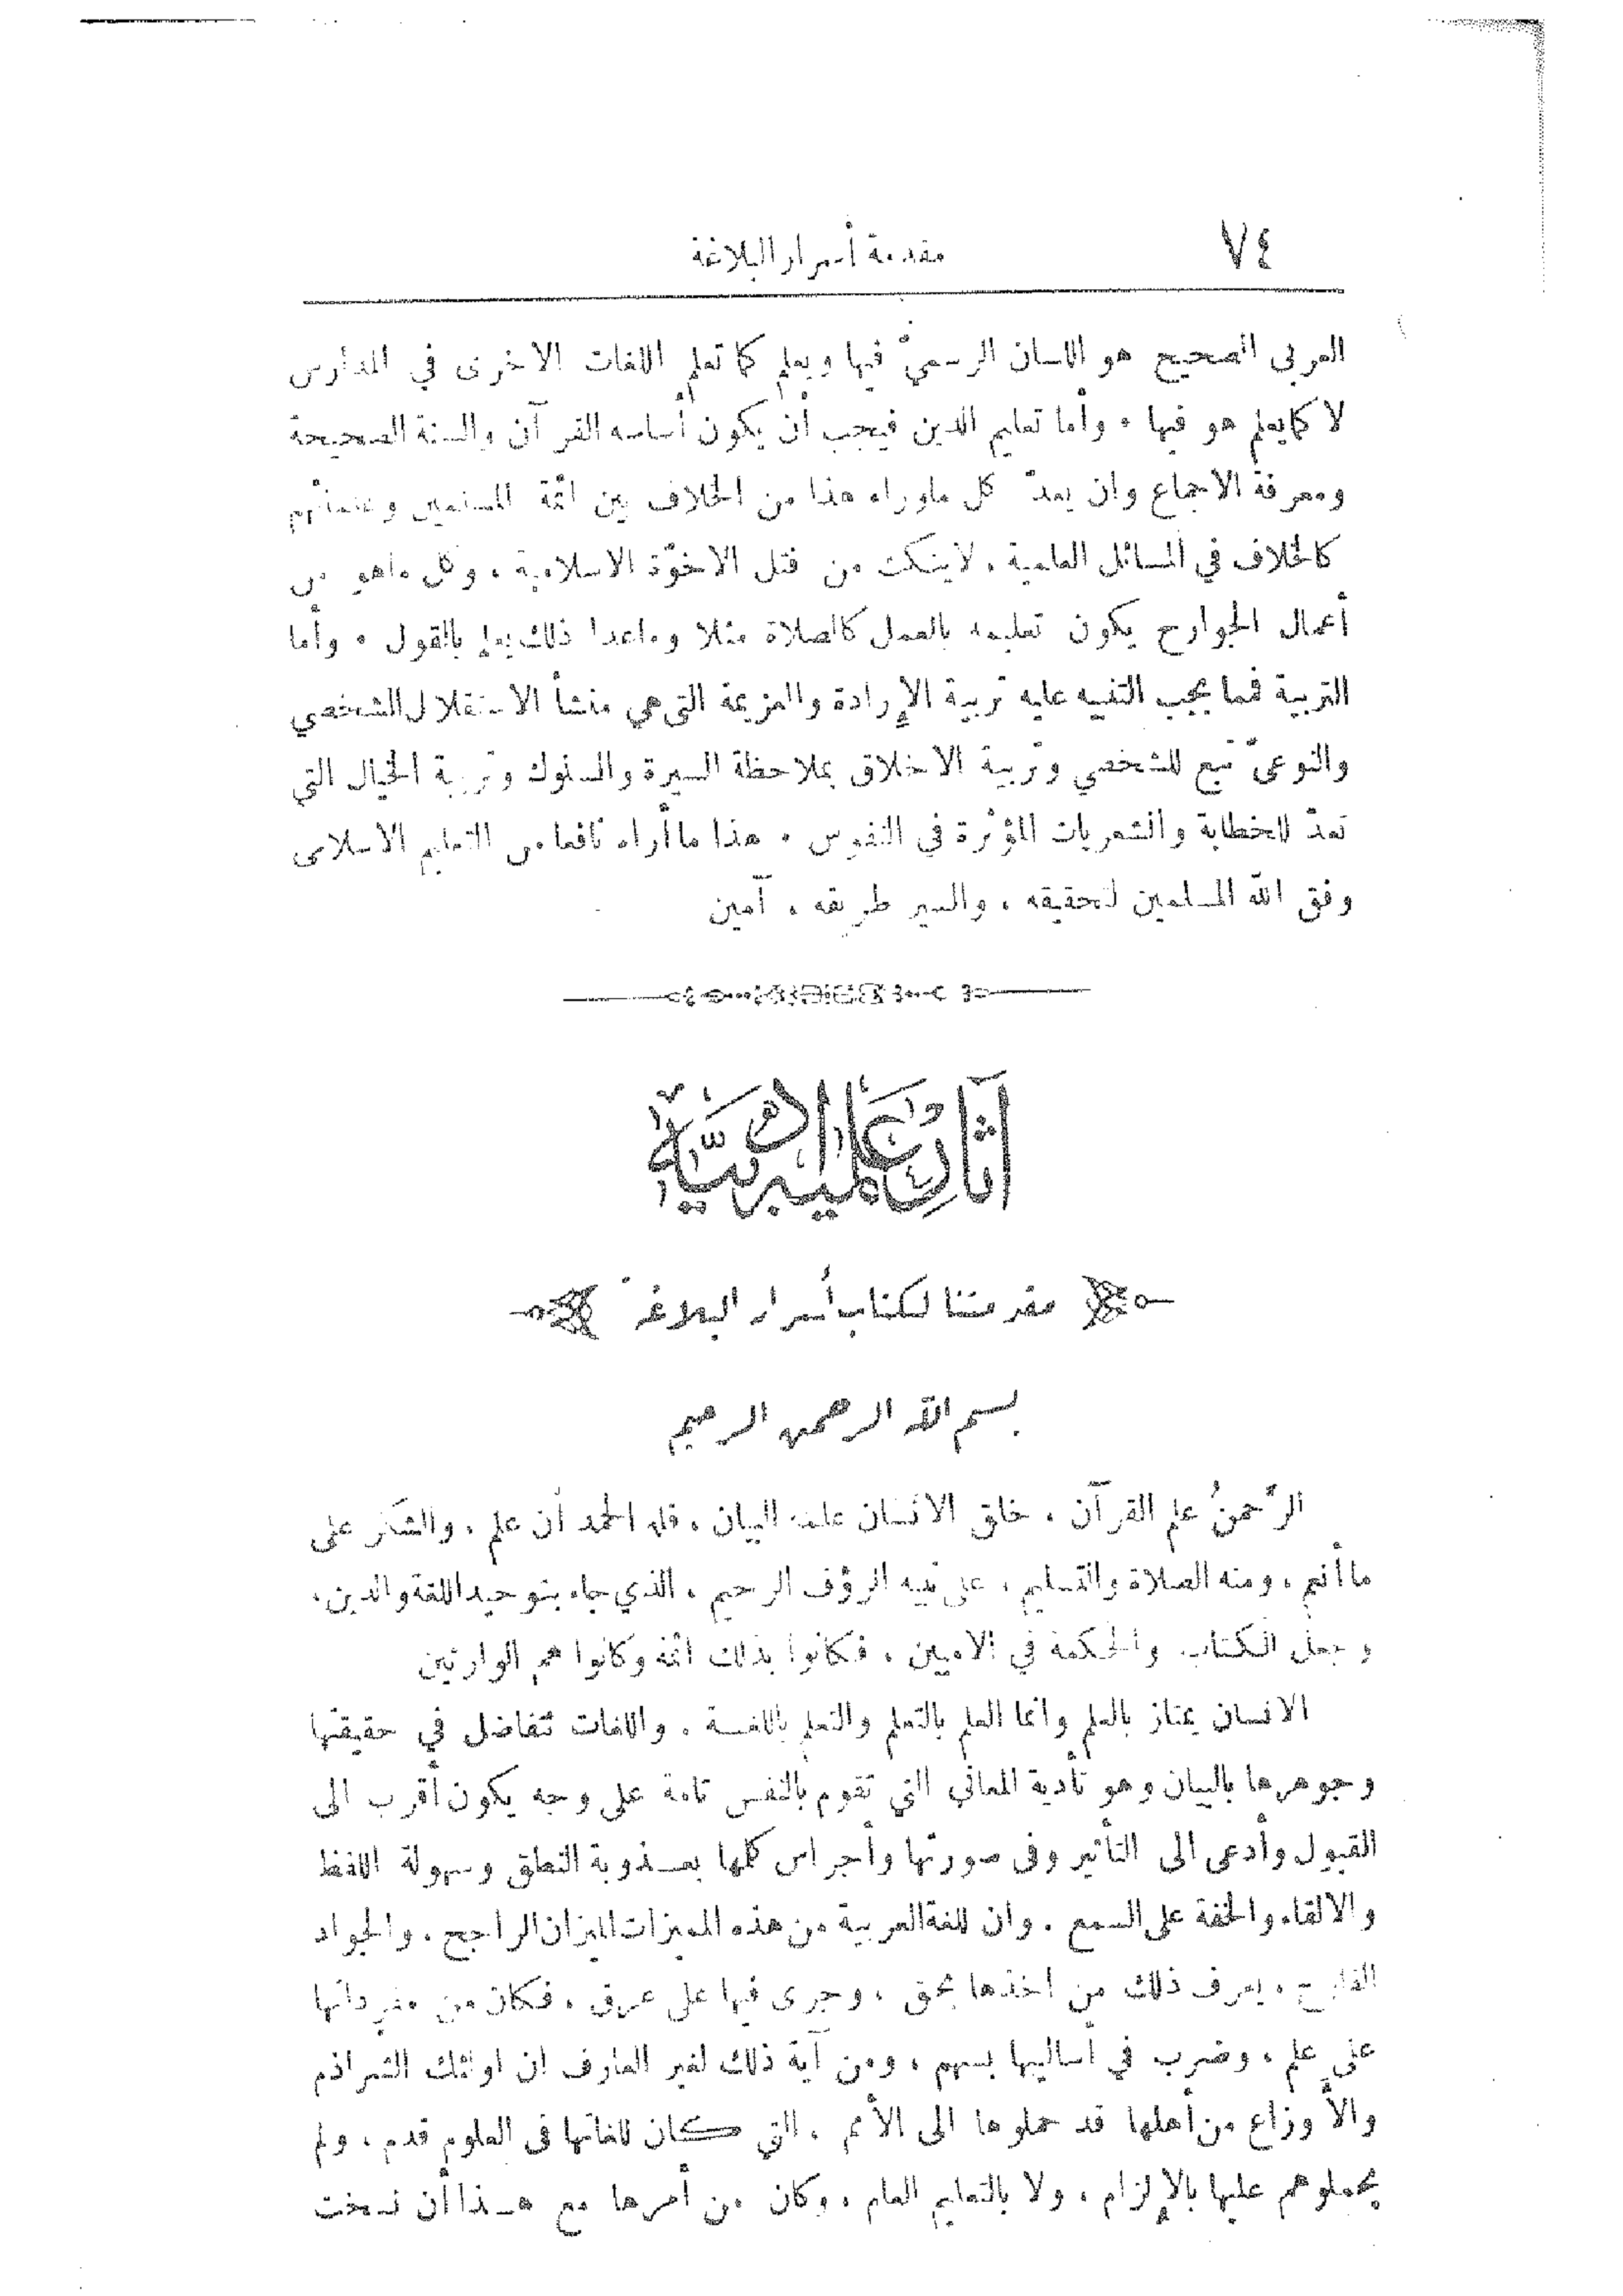 ٧٤
مقدمة أسرار البلاغة
العربى الصحيح هو اللسان الرسميّ فيها ويعلم كما تعلم اللغات الاخرى في المدارس
لا كما يعلم هو فيها . وأما تعليم الدين فيجب أن يكون أساسه القرآن والسنة الصحيحة
ومعرفة الاجماع وان يعدّ كل ماوراء هذا من الخلاف بين ائمة المسلمين وعلمائهم
كالخلاف في المسائل العلمية ، لاينكث من فتل الاخوّة الاسلامية ، وكل ماهو من
أعمال الجوارح يكون تعليمه بالعمل كالصلاة مثلا وماعدا ذلك يعلم بالقول . وأما
التربية فمما يجب التنبيه عليه تربية الإرادة والعزيمة التى هي منشأ الاستقلال الشخصي
والنوعىّ تبع للشخصي وتربية الاخلاق بملاحظة السيرة والسلوك وتربية الخيال التي
تعدّ للخطابة والشعريات المؤثرة في النفوس . هذا ما أراه نافعا من التعليم الاسلامى
وفق الله المسلمين لتحقيقه ، والسير طريقه ، آمين
آثار علمية أدبية
مقدمتنا لكتاب أسرار البلاغة
بسم الله الرحمن الرحيم
الرّحمنُ علم القرآن ، خلق الانسان علمه البيان ، فله الحمد أن علم ، والشكر على
ما أنعم ، ومنه الصلاة والتسليم ، على نبيه الرؤف الرحيم ، الذي جاء بتوحيد اللغة والدين ،
وجعل الكتاب والحكمة في الاميين ، فكانوا بذلك ائمة وكانوا هم الوارثين
الانسان يمتاز بالعلم وانما العلم بالتعلم والتعلم باللغة . واللغات تتفاضل في حقيقتها
وجوهرها بالبيان وهو تأدية المعاني التي تقوم بالنفس تامة على وجه يكون أقرب الى
القبول وأدعى الى التأثير وفى صورتها وأجراس كلمها بعذوبة النطق وسهولة اللفظ
والالقاء والخفة على السمع . وان للغة العربية من هذه المميزات الميزان الراجح ، والجواد
القارح ، يعرف ذلك من اخذها بحق ، وجرى فيها على عرق ، فكان من مفرداتها
على علم ، وضرب في اساليبها بسهم ، ومن آية ذلك لغير العارف ان اولئك الشراذم
والأوزاع من أهلها قد حملوها الى الأمم ، التي كان للغاتها فى العلوم قدم ، ولم
يحملوهم عليها بالإلزام ، ولا بالتعليم العام ، وكان من أمرها مع هذا أن نسخت